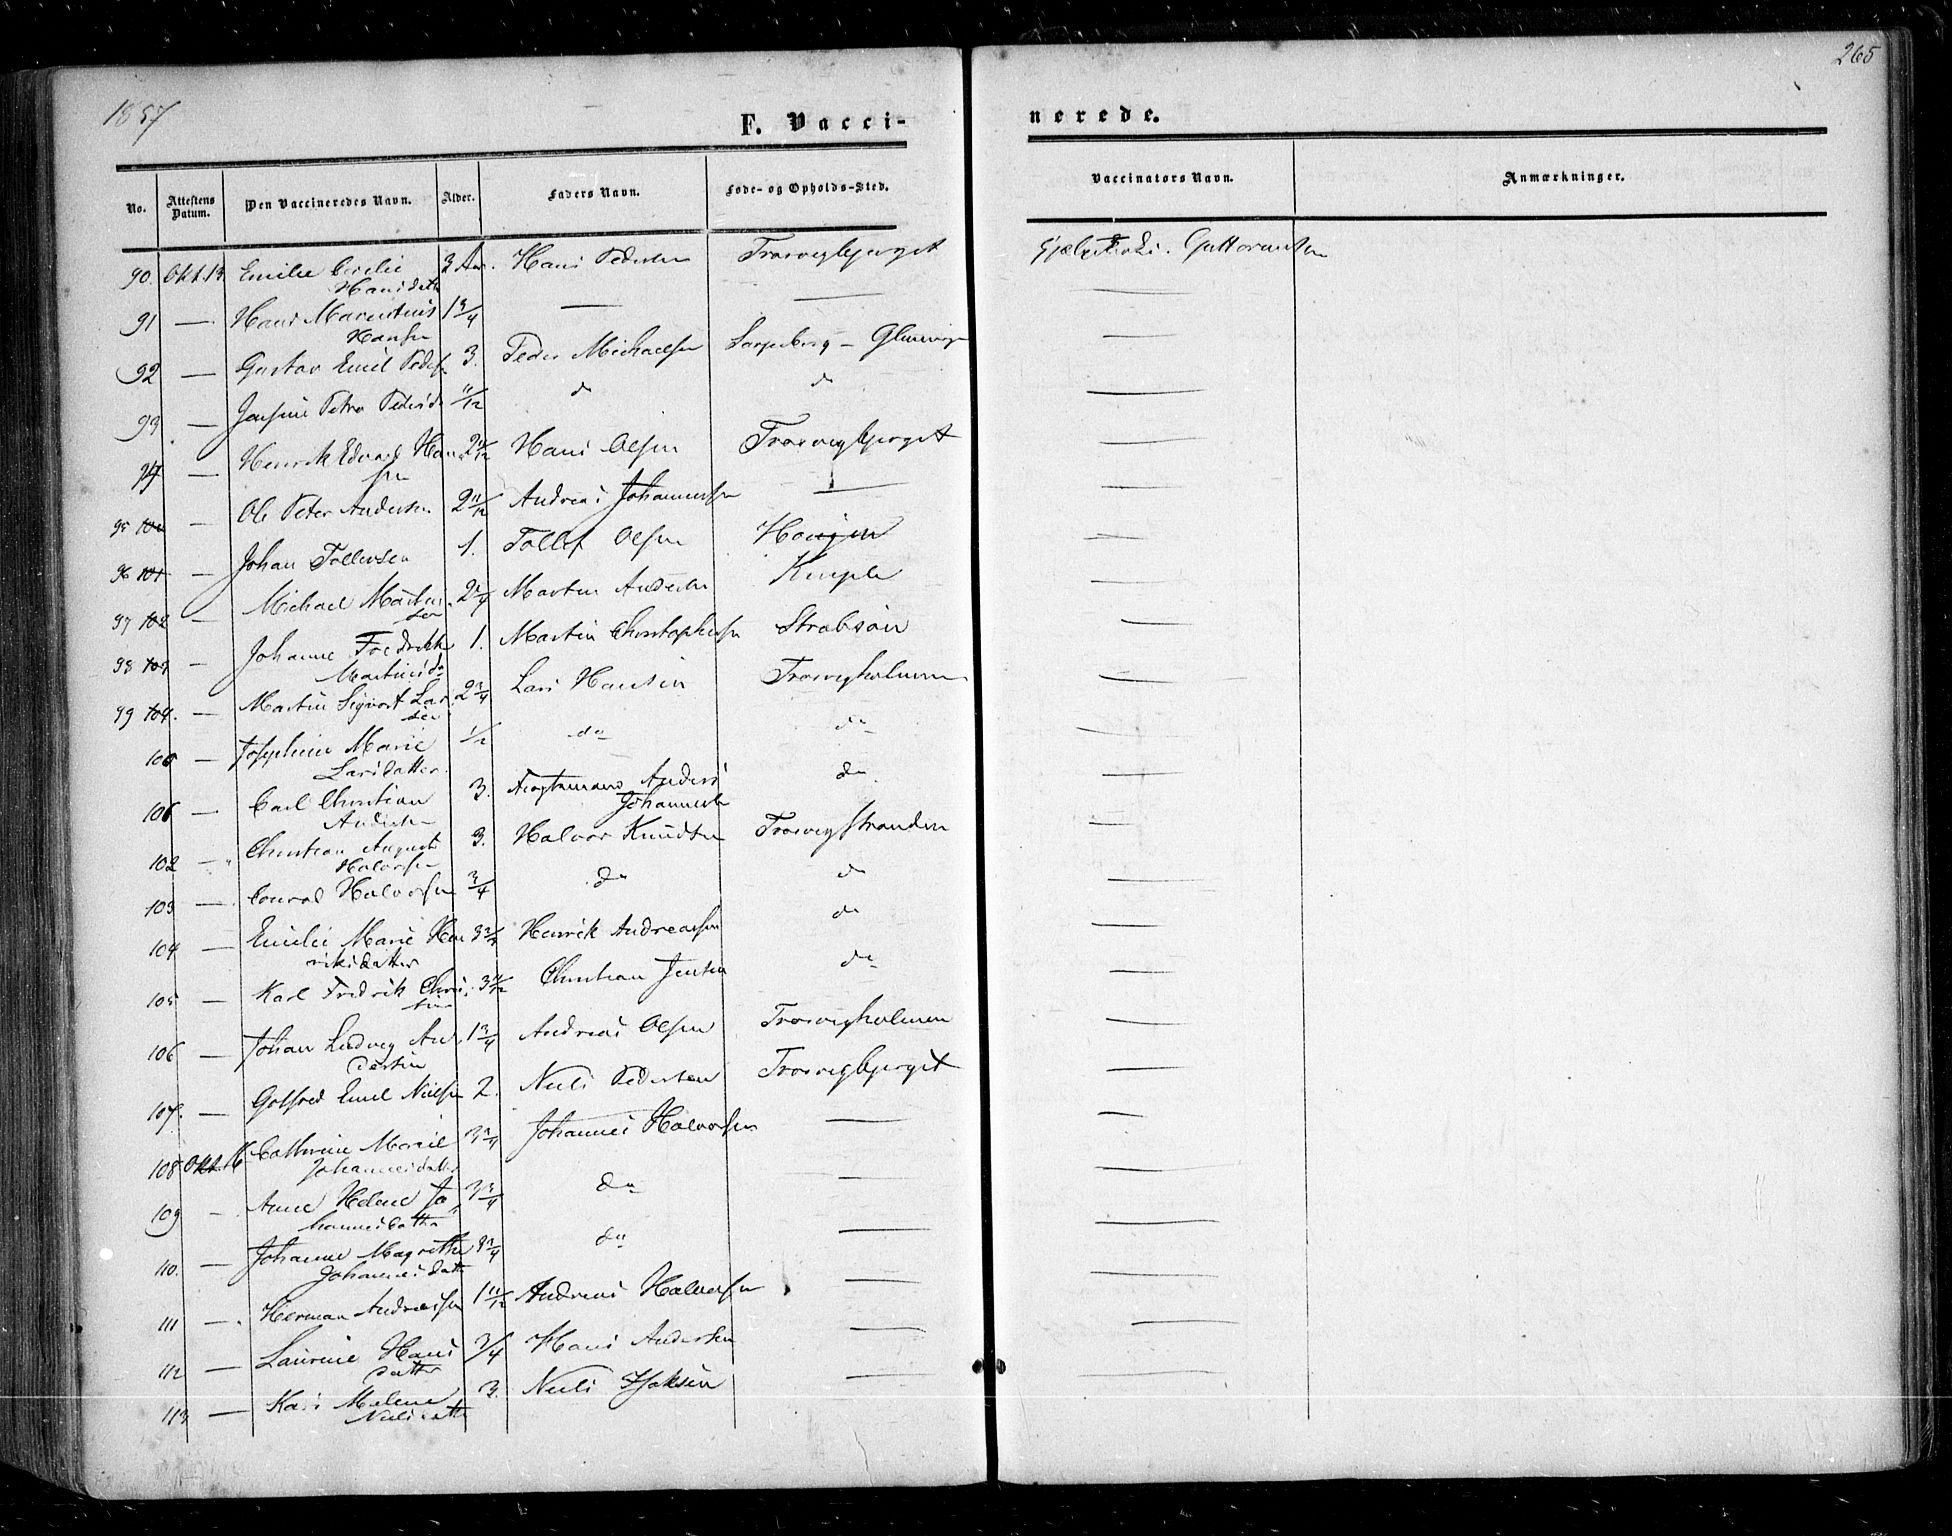 265
1857
F. Vacci-
nerede.
No. Attestens Datum. Den Vaccineredes Navn. Alder. Faders Navn. Føde- og Opholds-Sted. Vaccinators Navn. Anmærkninger.
90. Okt. 13. Emilie Hansdatter 3 Aar. Hans Pedersen Trosvigbjerget Guttormsen
91 — Hans Hansen 1 3/4 — — —
92 — Gustav Emil Peders 3. Peder Michaelsen Sarpsborg — —
93 — Petra Pedersd 11/12 do do —
94 — Henrik Edvard Han sen 2 11/12 Hans Olsen Trosvigbjerget —
95 100 — Ole Peter Andersen 2 11/12 Andreas Johannessen — —
96 101 — Johan Tollevsen 1. Tollef Olsen Haugen —
97 102 — Michael Martin sen 2 3/4 Martin Andersen —
98 103 — Johanne Fredrikke Martinsda 1. Martin Christophersen —
99 104. — Martin Sigvart Lar sen 2 3/4 Lars Hansen Trosvigholmen —
100 — Josephine Marie Larsdatter. 1/2 do do —
106 — Carl Christian Andersen 3. Anders Johannesen do —
102 — Christian August Halvorsen 3. Halvor Knudsen Trosvigstranden —
103 — Conrad Halvorsen 3/4 do do —
104 — Emilie Marie Hen riksdatter 3 3/4 Henrik Andreassen do —
105 — Karl Fredrik Chris tian 3 11/12 Christian Jensen do —
106 — Johan Ludvig An dersen 1 3/4 Andreas Olsen Trosvigholmen —
107. — Gotfred Emil Nielsen 2. Niels Pedersen Trosvigbjerget —
108 Okt. 16 Cathrine Marie Johannesdatter 3 3/4 Johannes Halvorsen — —
109 — Anne Helene Jo hannesdatter 3 3/4 do — —
110. — Johanne Magrethe Johannesdatter 3/4 do — —
111 — Herman Andreassen 1 11/12 Andreas Halvorsen — —
112 — Laurine Hans datter 3/4 Hans Andersen — —
113 — Kari Nielsdatter 3. Niels Isaksen — —